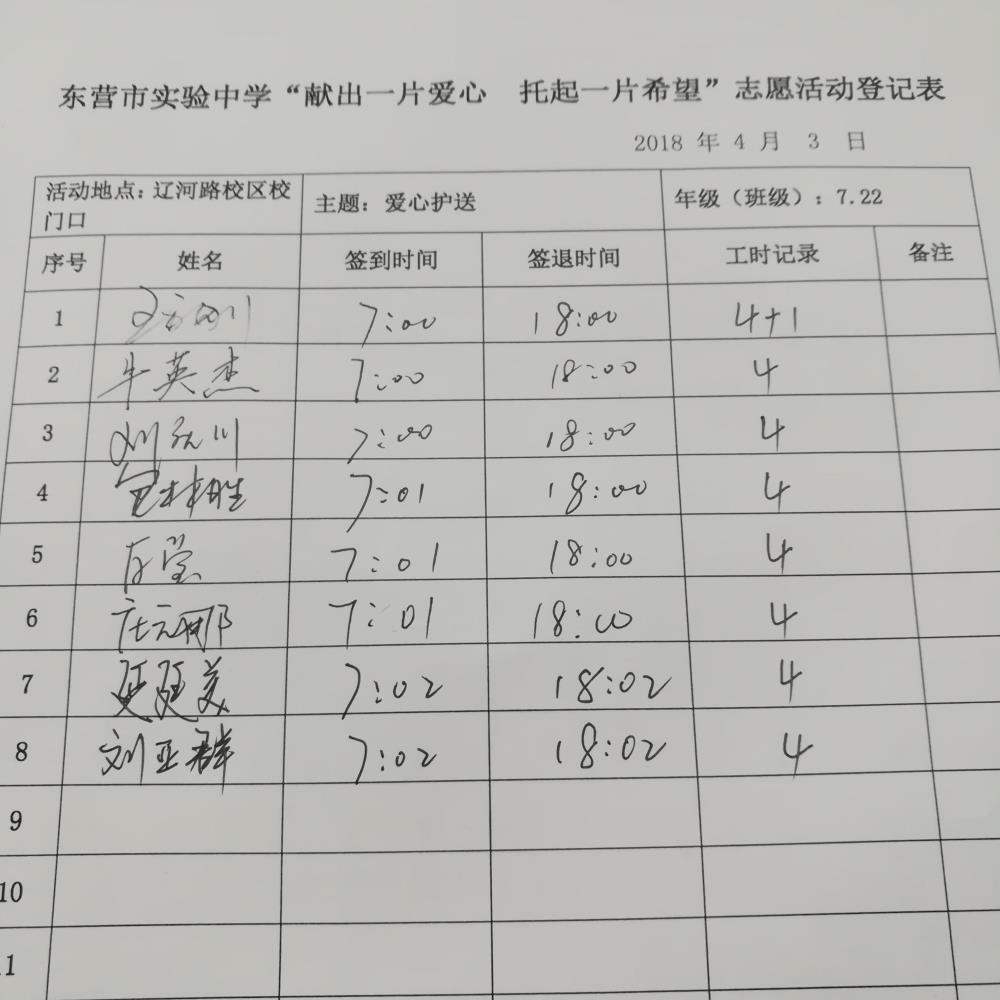 东营市实验中学“献出一片爱心 托起一片希望”志愿活动登记表
2018 年 4 月 3 日
活动地点：辽河路校区校门口 主题：爱心护送 年级（班级）：7.22
序号 姓名 签到时间 签退时间 工时记录 备注
1 7:00 18:00 4+1
2 牛英杰 7:00 18:00 4
3 7:00 18:00 4
4 7:01 18:00 4
5 7:01 18:00 4
6 7:01 18:00 4
7 7:02 18:02 4
8 刘亚群 7:02 18:02 4
9
10
11